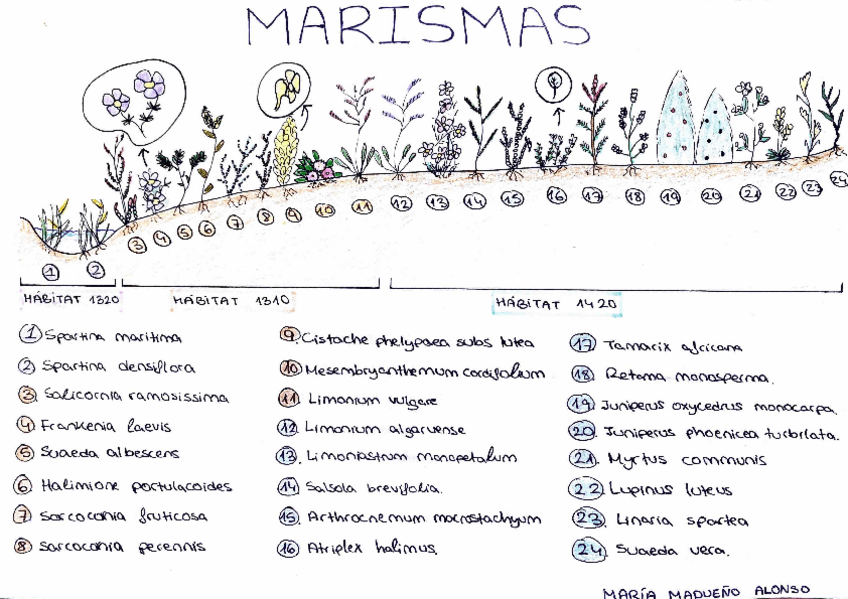 MARISMAS
1 2 3 4 5 6 7 8 9 10 11 12 13 14 15 16 17 18 19 20 21 22 23 24
HÁBITAT 1320 HÁBITAT 1310 HÁBITAT 1420
1 Spartina maritima
2 Spartina densiflora
3 Salicornia ramosissima
4 Frankenia laevis
5 Suaeda albescens
6 Halimione portulacoides
7 Sarcoconia fruticosa
8 Sarcoconia perennis
9 Cistache phelypaea subs lutea
10 Mesembryanthemum cordifolium
11 Limonium vulgare
12 Limonium algarvense
13 Limoniastrum monopetalum
14 Salsola brevifolia.
15 Arthrocnemum macrostachyum
16 Atriplex halimus.
17 Tamarix africana
18 Retama monosperma.
19 Juniperus oxycedrus monocarpa.
20 Juniperus phoenicea turbilata.
21. Myrtus communis
22 Lupinus luteus
23 Linaria spartea
24 Suaeda vera.
MARÍA MADUEÑO ALONSO